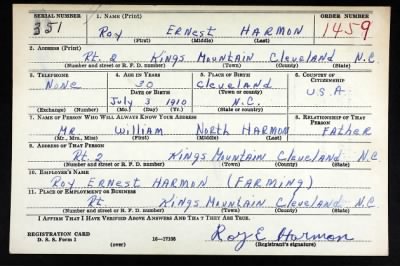 SERIAL NUMBER 1. NAME (Print) ORDER NUMBER
351 Roy Ernest Harmon 1459
(First) (Middle) (Last)
2. ADDRESS (Print)
Rt. 2 Kings Mountain Cleveland N.C.
(Number and street or R. F. D. number) (Town) (County) (State)
3. TELEPHONE 4. AGE IN YEARS 5. PLACE OF BIRTH 6. COUNTRY OF CITIZENSHIP
None 30 Cleveland
DATE OF BIRTH (Town or county) U.S.A.
July 3 1910 N.C.
(Exchange) (Number) (Mo.) (Day) (Yr.) (State or country)
7. NAME OF PERSON WHO WILL ALWAYS KNOW YOUR ADDRESS 8. RELATIONSHIP OF THAT PERSON
Mr. William North Harmon Father
(Mr., Mrs., Miss) (First) (Middle) (Last)
9. ADDRESS OF THAT PERSON
Rt. 2 Kings Mountain Cleveland N.C.
(Number and street or R. F. D. number) (Town) (County) (State)
10. EMPLOYER'S NAME
Roy Ernest Harmon (Farming)
11. PLACE OF EMPLOYMENT OR BUSINESS
Rt. Kings Mountain Cleveland N.C.
(Number and street or R. F. D. number) (Town) (County) (State)
I AFFIRM THAT I HAVE VERIFIED ABOVE ANSWERS AND THAT THEY ARE TRUE.
REGISTRATION CARD Roy E Harmon
D. S. S. Form 1 (over) 16—17105 (Registrant's signature)